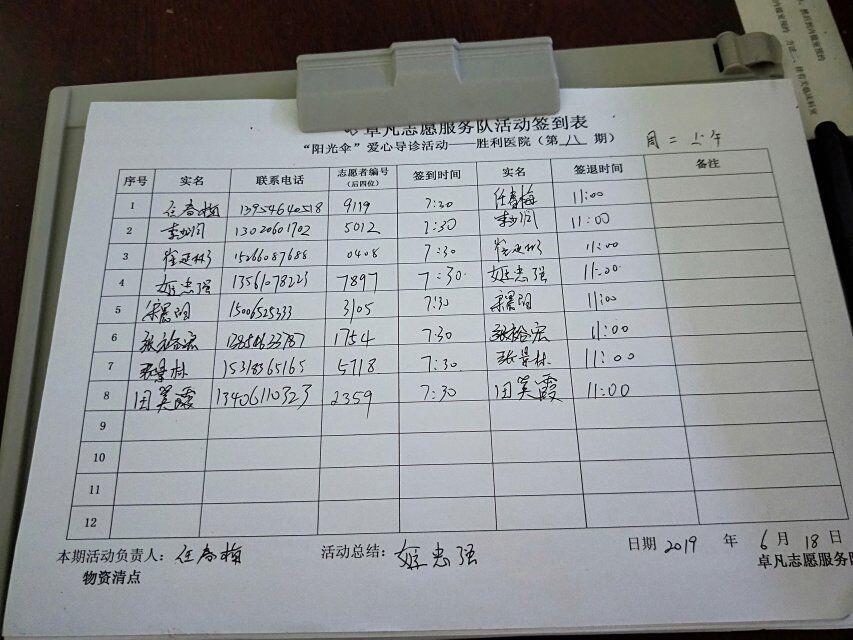 卓凡志愿服务队活动签到表
“阳光伞”爱心导诊活动——胜利医院（第 八 期） 周二上午
序号 实名 联系电话 志愿者编号（后四位） 签到时间 实名 签退时间 备注
1 任春梅 13954640518 9119 7:30 任春梅 11:00
2 13020601702 5012 7:30 11:00
3 15266087688 0408 7:30 11:00
4 姬忠强 13561078223 7897 7:30 姬忠强 11:00
5 3105 7:30 11:00
6 张裕宏 1754 7:30 张裕宏 11:00
7 张景林 15318365165 5718 7:30 张景林 11:00
8 田美霞 13406110323 2359 7:30 田美霞 11:00
9
10
11
12
本期活动负责人：任春梅 活动总结：姬忠强 日期 2019 年 6 月 18 日
物资清点 卓凡志愿服务队